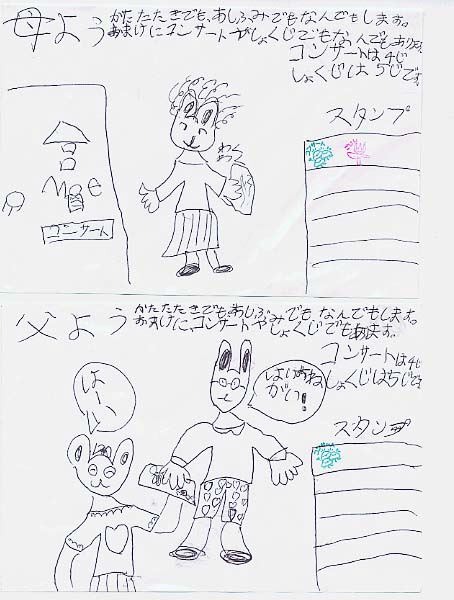 母よう
がたたたきでも、あしふみでもなんでもします。
おまけにコンサートやしょくじでもなんでもあります。
コンサートは4じ
しょくじは5じです。
スタンプ
わく
わく
コンサート
父よう
かたたたきでも、あしふみでも、なんでもします。
おまけに、コンサートやしょくじでもあります。
コンサートは4じ
しょくじは5じです
スタンプ
はーい